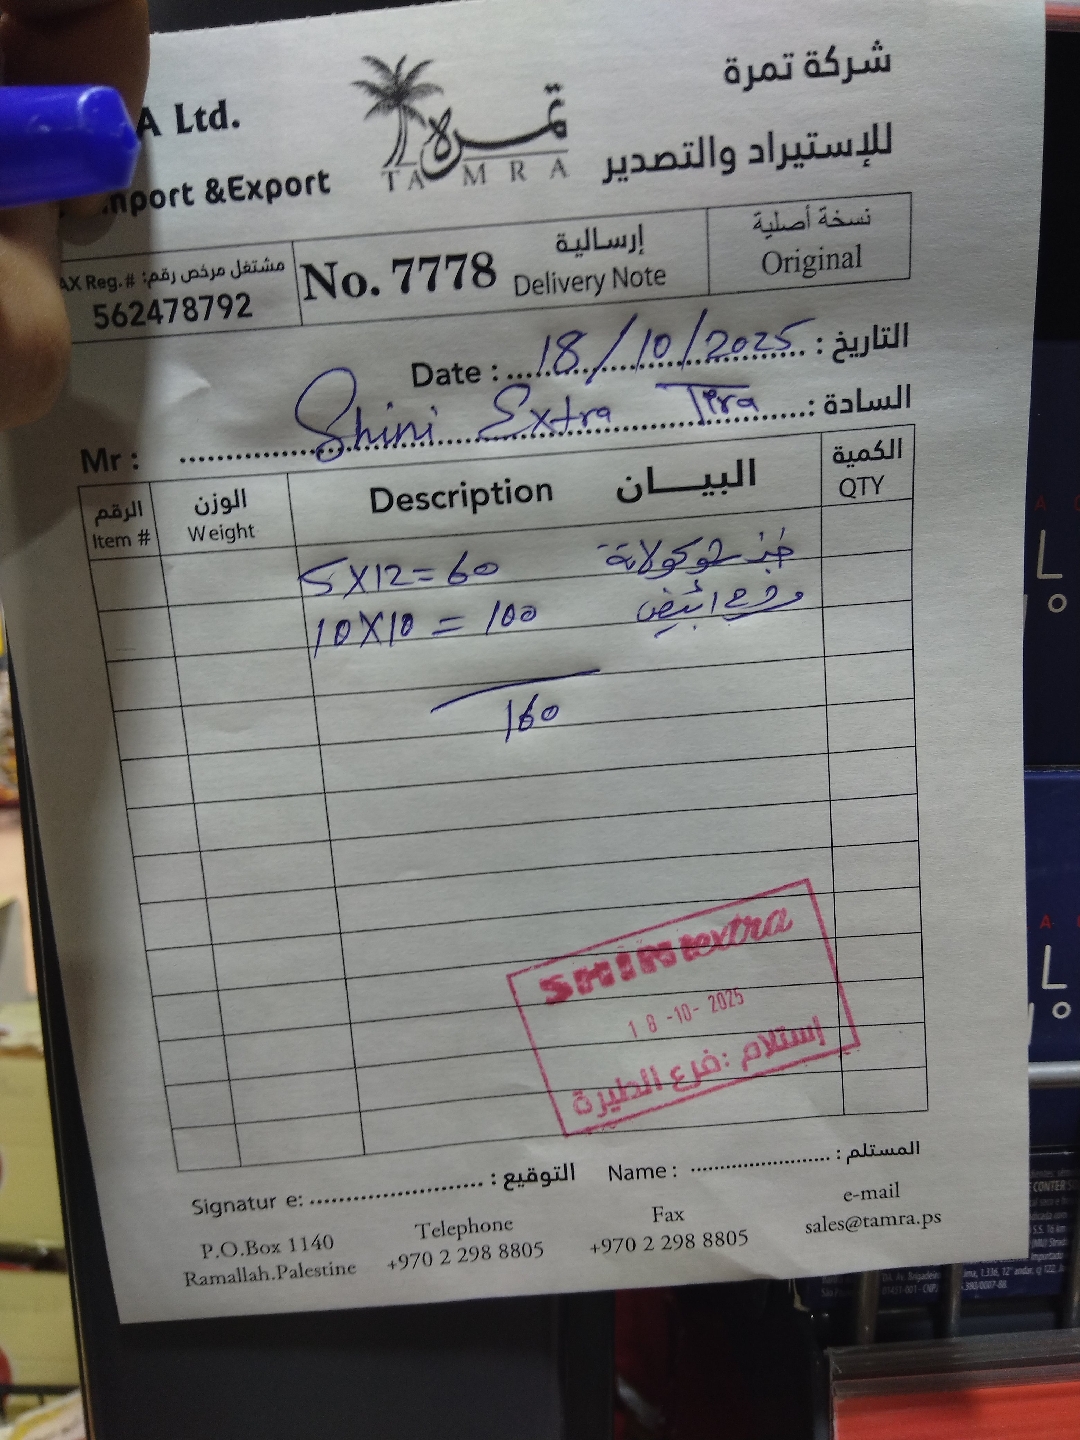 شركة تمرة
للإستيراد والتصدير
A Ltd.
&Export
تمرة
TAMRA
نسخة أصلية
Original
إرسالية
Delivery Note
No. 7778
مشتغل مرخص رقم:
Reg.#
562478792
Date : 18/10/2025 التاريخ :
Mr : Shini Extra Tira السادة :
الرقم
Item #
الوزن
Weight
Description البيـــان
الكمية
QTY
5X12=60 شوكولاتة
10X10 = 100 ابيض
160
SHINI extra
18-10-2025
إستلام :فرع الطيرة
Signatur e: التوقيع :
Name : المستلم :
P.O.Box 1140
Ramallah.Palestine
Telephone
+970 2 298 8805
Fax
+970 2 298 8805
e-mail
sales@tamra.ps